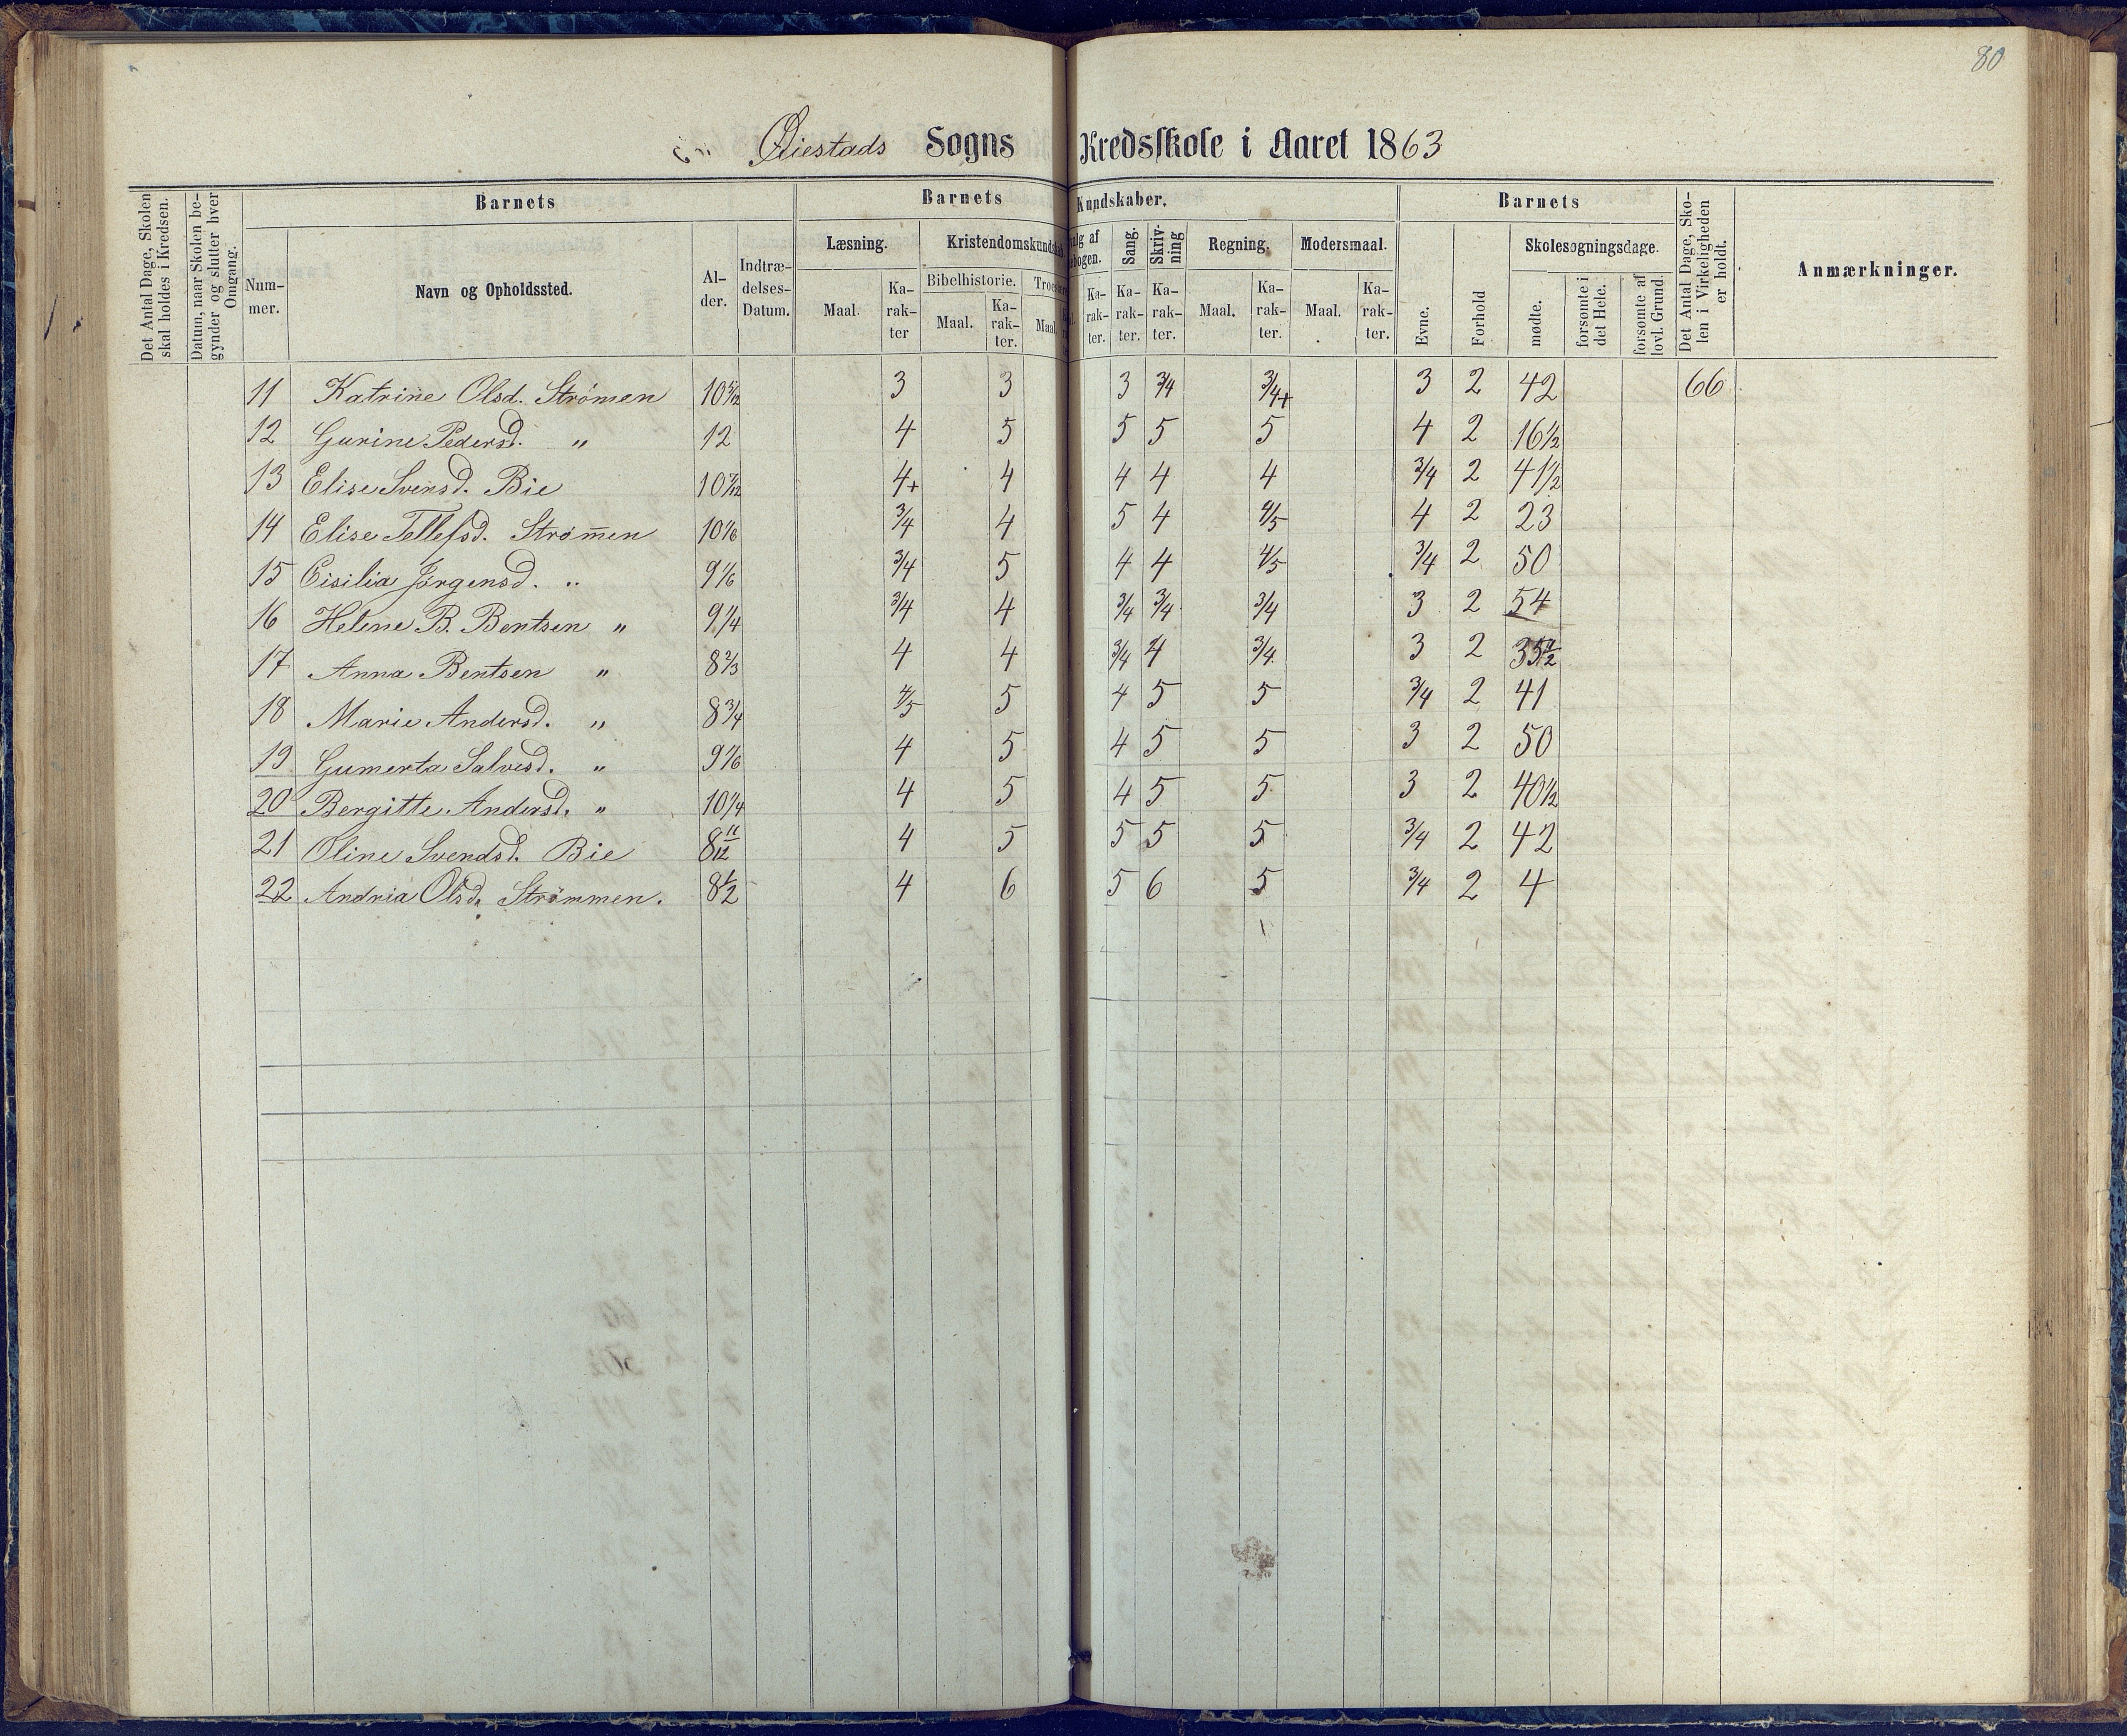 80
Øiestads Sogns Kredsskole i Aaret 1863
Det Antal Dage, Skolen skal holdes i Kredsen.
Datum, naar Skolen begynder og slutter hver Omgang.
Barnets
Nummer.
Navn og Opholdssted.
Alder.
Indtrædelses-Datum.
Barnets Kundskaber.
Læsning.
Maal. Karakter
Kristendomskundskab
Bibelhistorie.
Maal. Karakter.
Maal.
Karakter.
Sang.
Karakter.
Skrivning
Karakter.
Regning.
Maal. Karakter.
Modersmaal.
Maal. Karakter.
Barnets
Evne.
Forhold
Skolesøgningsdage.
mødte.
forsømte i det Hele.
forsømte af lovl. Grund.
Det Antal Dage, Skolen i Virkeligheden er holdt.
Anmærkninger.
11 Katrine Olsd. Strömen 10 5/12 3 3 3 3/4 3/4+ 3 2 42 66
12 Gurine Pedersd. " 12 4 5 5 5 5 4 2 16 1/2
13 Elise Svensd. Bie 10 7/12 4+ 4 4 4 4 3/4 2 41 1/2
14 Elise Tellefsd. Strömmen 10 1/6 3/4 4 5 4 4/5 4 2 23
15 Cisilia Jørgensd. " 9 1/6 3/4 5 4 4 4/5 3/4 2 50
16 Helene B. Bentsen " 9 1/4 3/4 4 3/4 3/4 3/4 3 2 54
17 Anna Bentsen " 8 2/3 4 4 3/4 4 3/4 3 2 35 1/2
18 Marie Andersd. " 8 3/4 4/5 5 4 5 5 3/4 2 41
19 Gumerta Salvesd. " 9 1/6 4 5 4 5 5 3 2 50
20 Bergitte Andersd. " 10 1/4 4 5 4 5 5 3 2 40 1/2
21 Oline Svendsd. Bie 8 11/12 4 5 5 5 5 3/4 2 42
22 Andria Olsd. Strömmen. 8 1/2 4 6 5 6 5 3/4 2 4